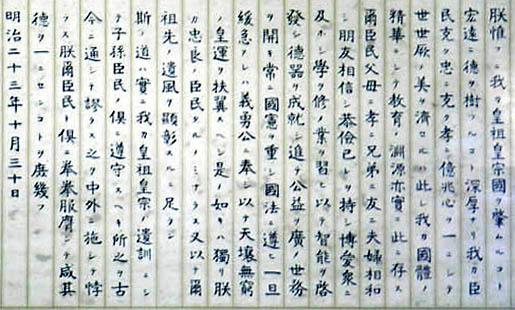 朕惟フニ我カ皇祖皇宗國ヲ肇ムルコト
宏遠ニ德ヲ樹ツルコト深厚ナリ我カ臣
民克ク忠ニ克ク孝ニ億兆心ヲ一ニシテ
世世厥ノ美ヲ濟セルハ此レ我カ國體ノ
精華ニシテ教育ノ淵源亦實ニ此ニ存ス
爾臣民父母ニ孝ニ兄弟ニ友ニ夫婦相和
シ朋友相信シ恭儉己レヲ持シ博愛衆ニ
及ホシ學ヲ修メ業ヲ習ヒ以テ智能ヲ啓
發シ德器ヲ成就シ進テ公益ヲ廣メ世務
ヲ開キ常ニ國憲ヲ重シ國法ニ遵ヒ一旦
緩急アレハ義勇公ニ奉シ以テ天壤無窮
ノ皇運ヲ扶翼スヘシ是ノ如キハ獨リ朕
カ忠良ノ臣民タルノミナラス又以テ爾
祖先ノ遺風ヲ顯彰スルニ足ラン
斯ノ道ハ實ニ我カ皇祖皇宗ノ遺訓ニシ
テ子孫臣民ノ俱ニ遵守スヘキ所之ヲ古
今ニ通シテ謬ラス之ヲ中外ニ施シテ悖
ラス朕爾臣民ト俱ニ拳拳服膺シテ咸其
德ヲ一ニセンコトヲ庶幾フ
明治二十三年十月三十日